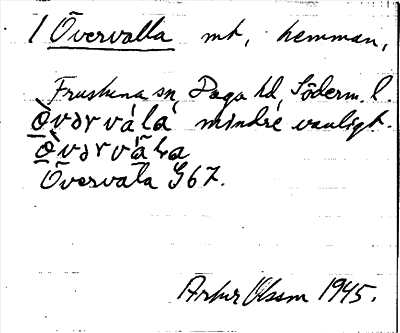 1 Övervalla mt, hemman,
Frustuna sn, Daga hd, Söderm. l.
Òvərvàla mindre vanligt.
Òvərvà̈La
Övervala G67.
Artur Olsson 1945.